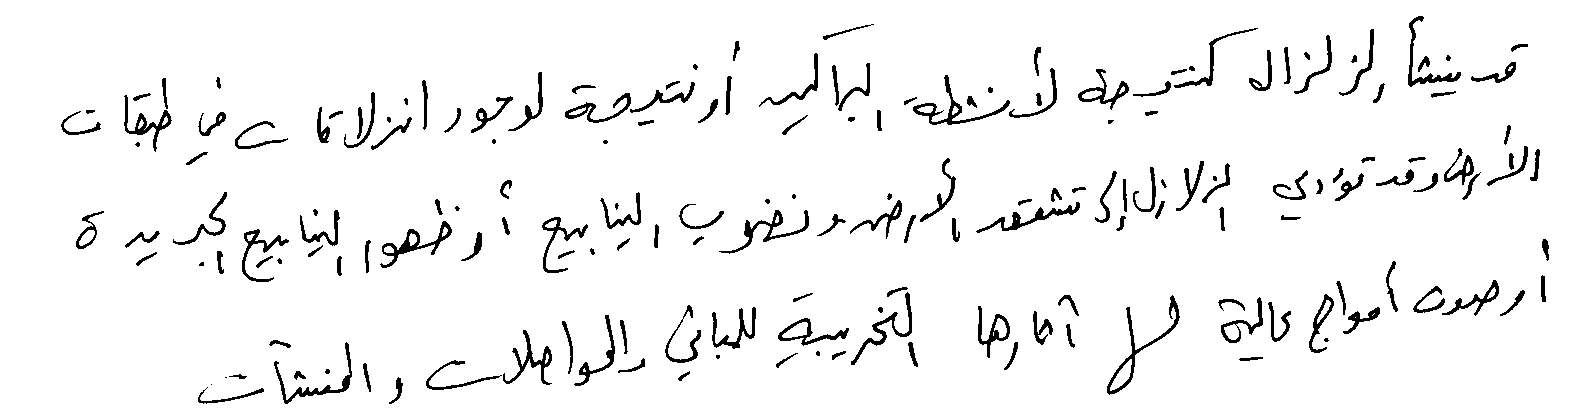 قد ينشأ الزلزال كنتيجة لأنشطة البراكين أو نتيجة لوجود انزلاقات في طبقات
الأرض وقد تؤدي الزلازل إلى تشقق الأرض ونضوب الينابيع أو ظهور الينابيع الجديدة
أو حدوث أمواج عالية آثارها التخريبية للمباني والمواصلات والمنشآت